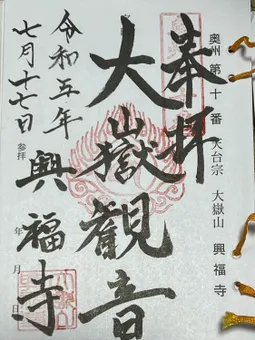 奥州第十番 天台宗 大嶽山 興福寺
奉拝
大嶽観音
興福寺
令和五年
七月十七日
参拝 年 月 日